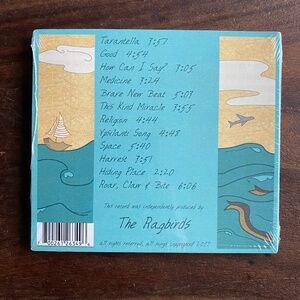 Tarantella 3:57
Good 4:54
How Can I Say? 3:05
Medicine 3:24
Brave New Beat 5:03
This Kind Miracle 3:55
Religion 4:44
Ypsilanti Song 4:48
Space 5:40
Harvest 3:51
Hiding Place 2:20
Roar, Claw & Bite 6:06
This record was independently produced by
The Ragbirds
all rights reserved, all songs copyright 2007